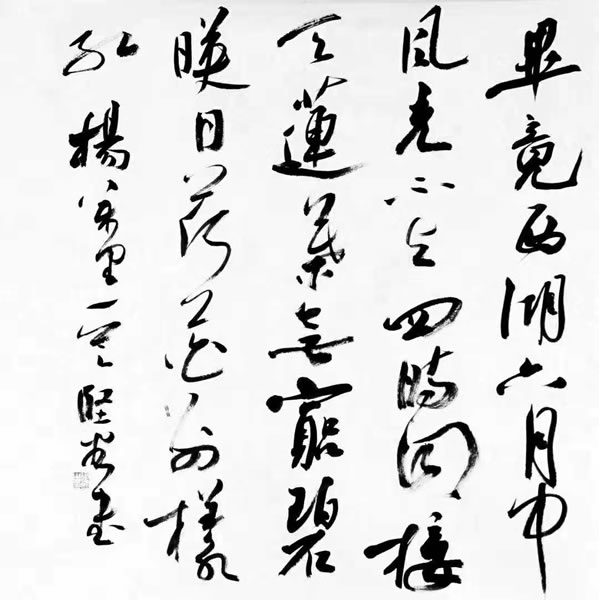 畢竟西湖六月中
風光不与四時同接
天蓮葉無窮碧
暎日荷花別樣
紅 楊萬里 堅書